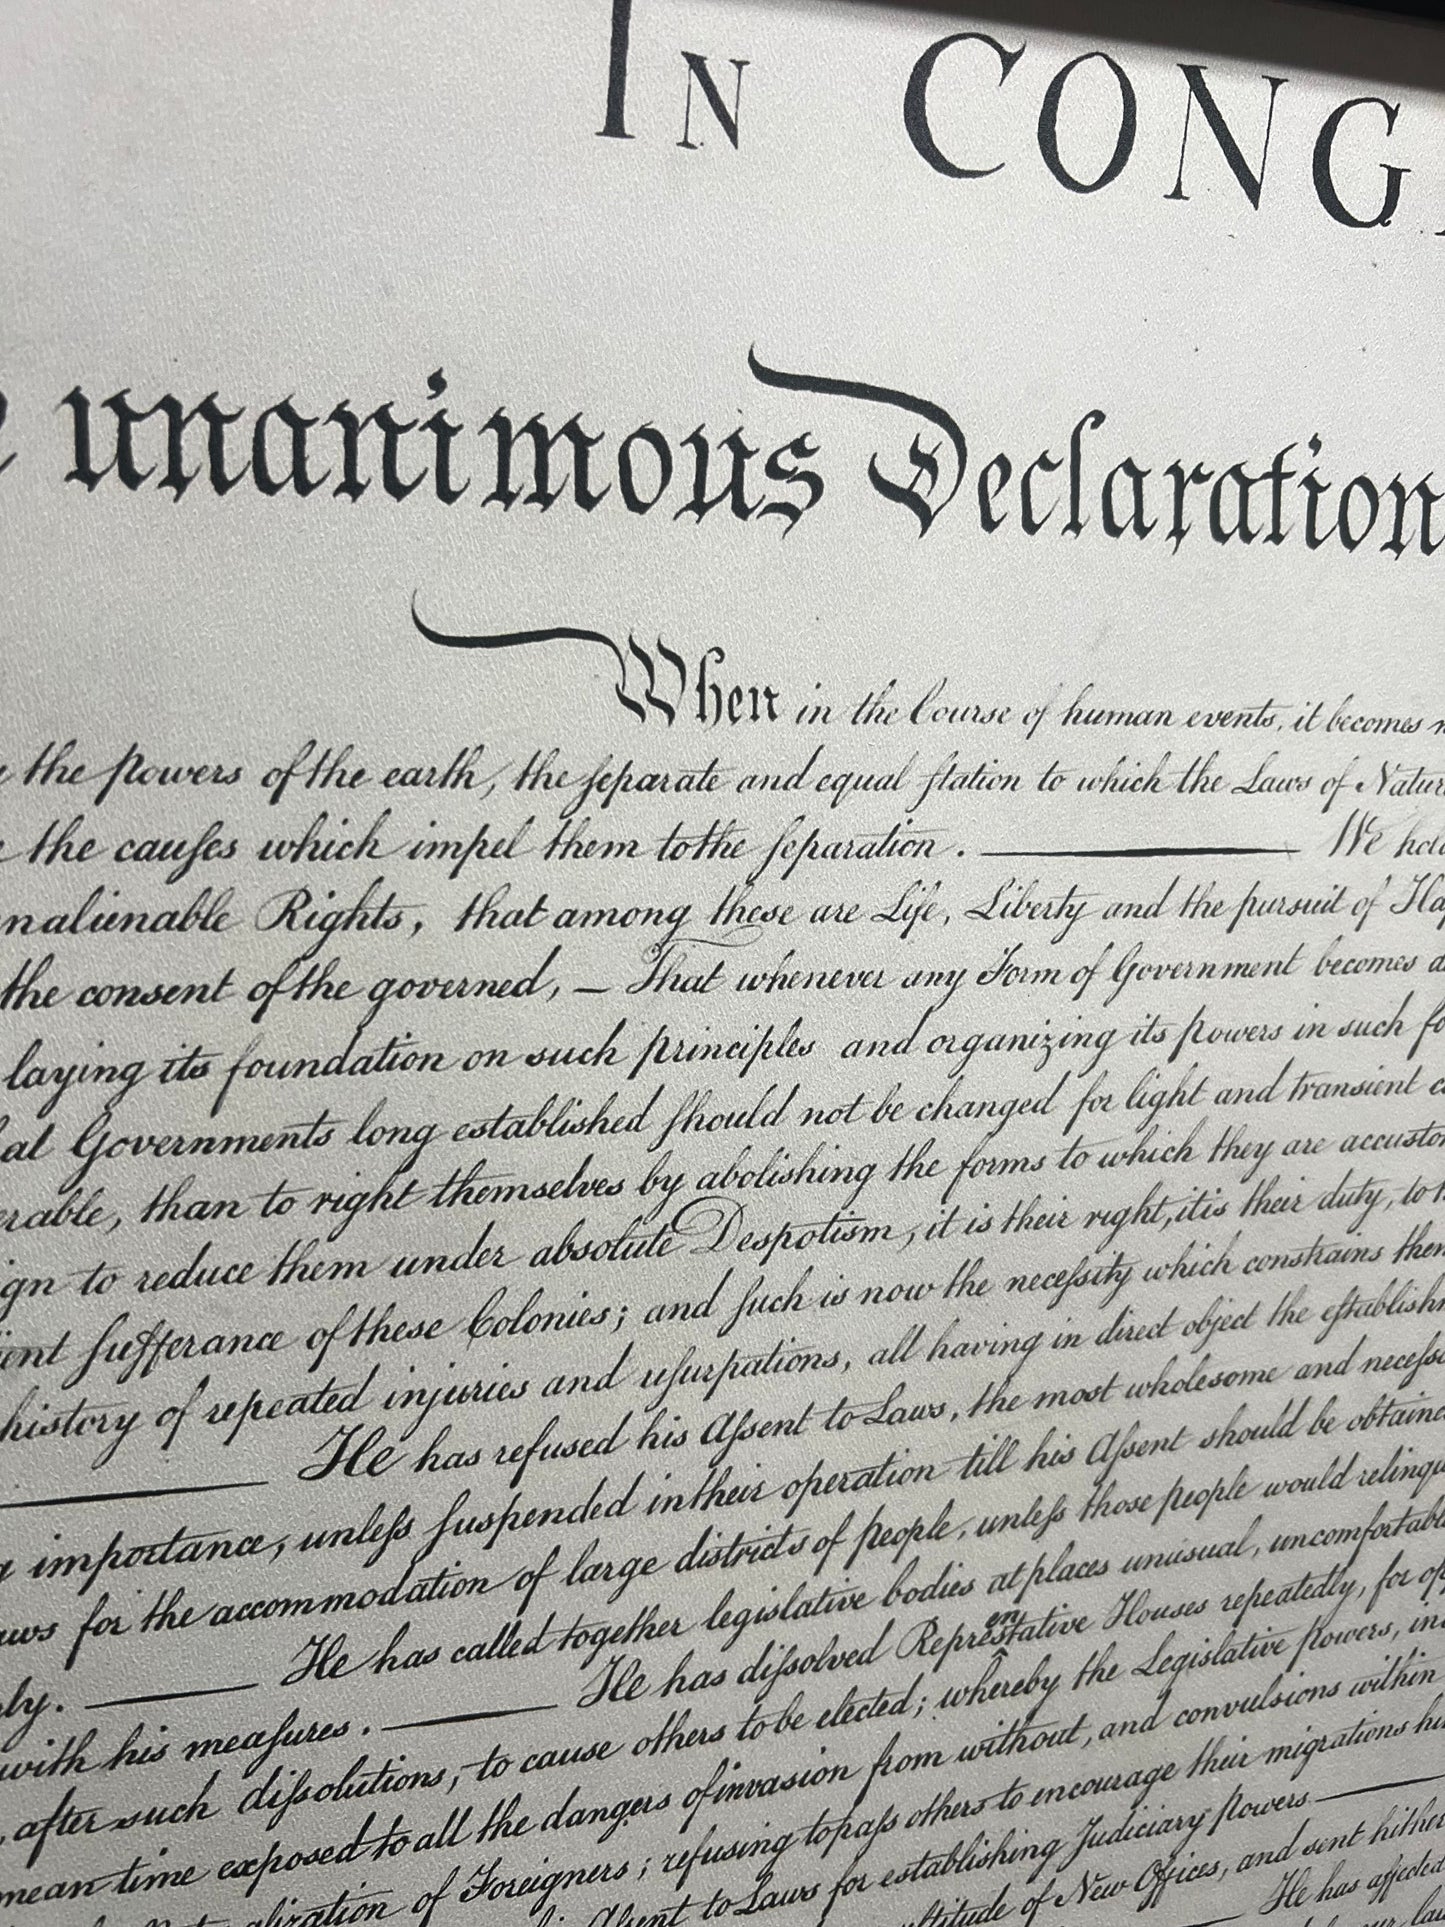 In CONG
unanimous Declaration
When in the Course of human events, it becomes
the powers of the earth, the ſeparate and equal ſtation to which the Laws of Natur
the cauſes which impel them to the ſeparation. We hol
nalienable Rights, that among these are Life, Liberty and the pursuit of Hap
the consent of the governed, — That whenever any Form of Government becomes
laying its foundation on such principles and organizing its powers in such fo
at Governments long established ſhould not be changed for light and transient c
erable, than to right themselves by abolishing the forms to which they are accustom
ign to reduce them under absolute Despotism, it is their right, it is their duty, to
ient ſufferance of these Colonies; and ſuch is now the neceſsity which constrains them
history of repeated injuries and uſurpations, all having in direct object the eſtablishm
He has refused his Aſsent to Laws, the most wholesome and neceſsa
importance, unleſs ſuspended in their operation till his Aſsent should be obtaine
aws for the accommodation of large districts of people, unleſs those people would relinqu
ly. He has called together legislative bodies at places unusual, uncomfortabl
with his meaſures. He has diſsolved Represtative Houses repeatedly, for op
en
, after such diſsolutions, to cause others to be elected; whereby the Legislative powers, in
mean time exposed to all the dangers of invasion from without, and convulsions within
alization of Foreigners; refusing to paſs others to encourage their migrations hi
Aſsent to Laws for establishing Judiciary powers
ltitude of New Offices, and sent hither
He has affected